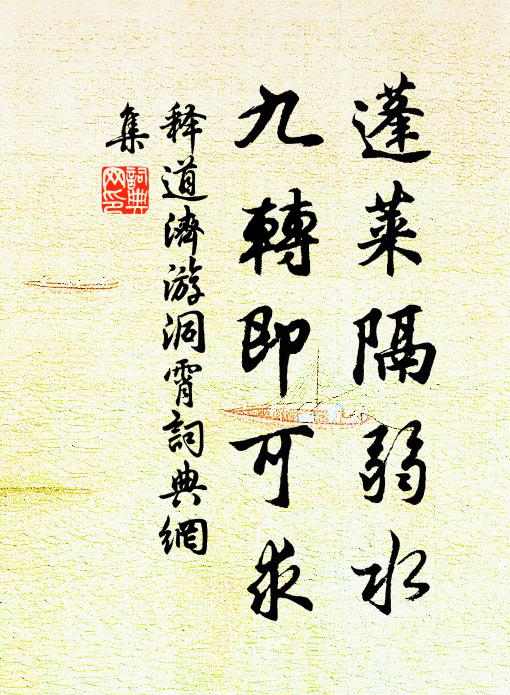 蓬莱隔弱水
九轉即可求
释道濟游洞霄詞典網
集
詞典
网印